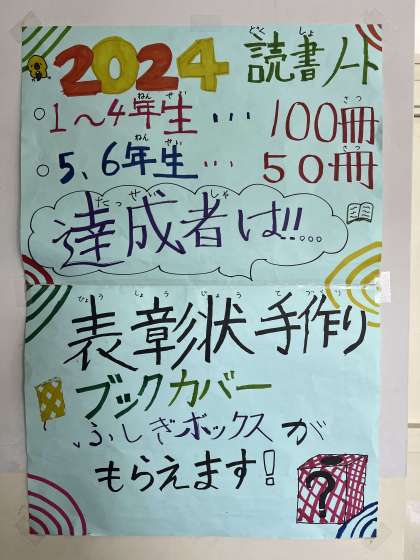 2024 読書ノート
○1～4年生… 100冊
○5、6年生… 50冊
達成者は!!...
表彰状 手作り
ブックカバー
ふしぎボックスが
もらえます!
?